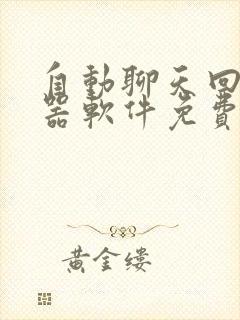 自動聊天回
器軟件免費
黃金縷